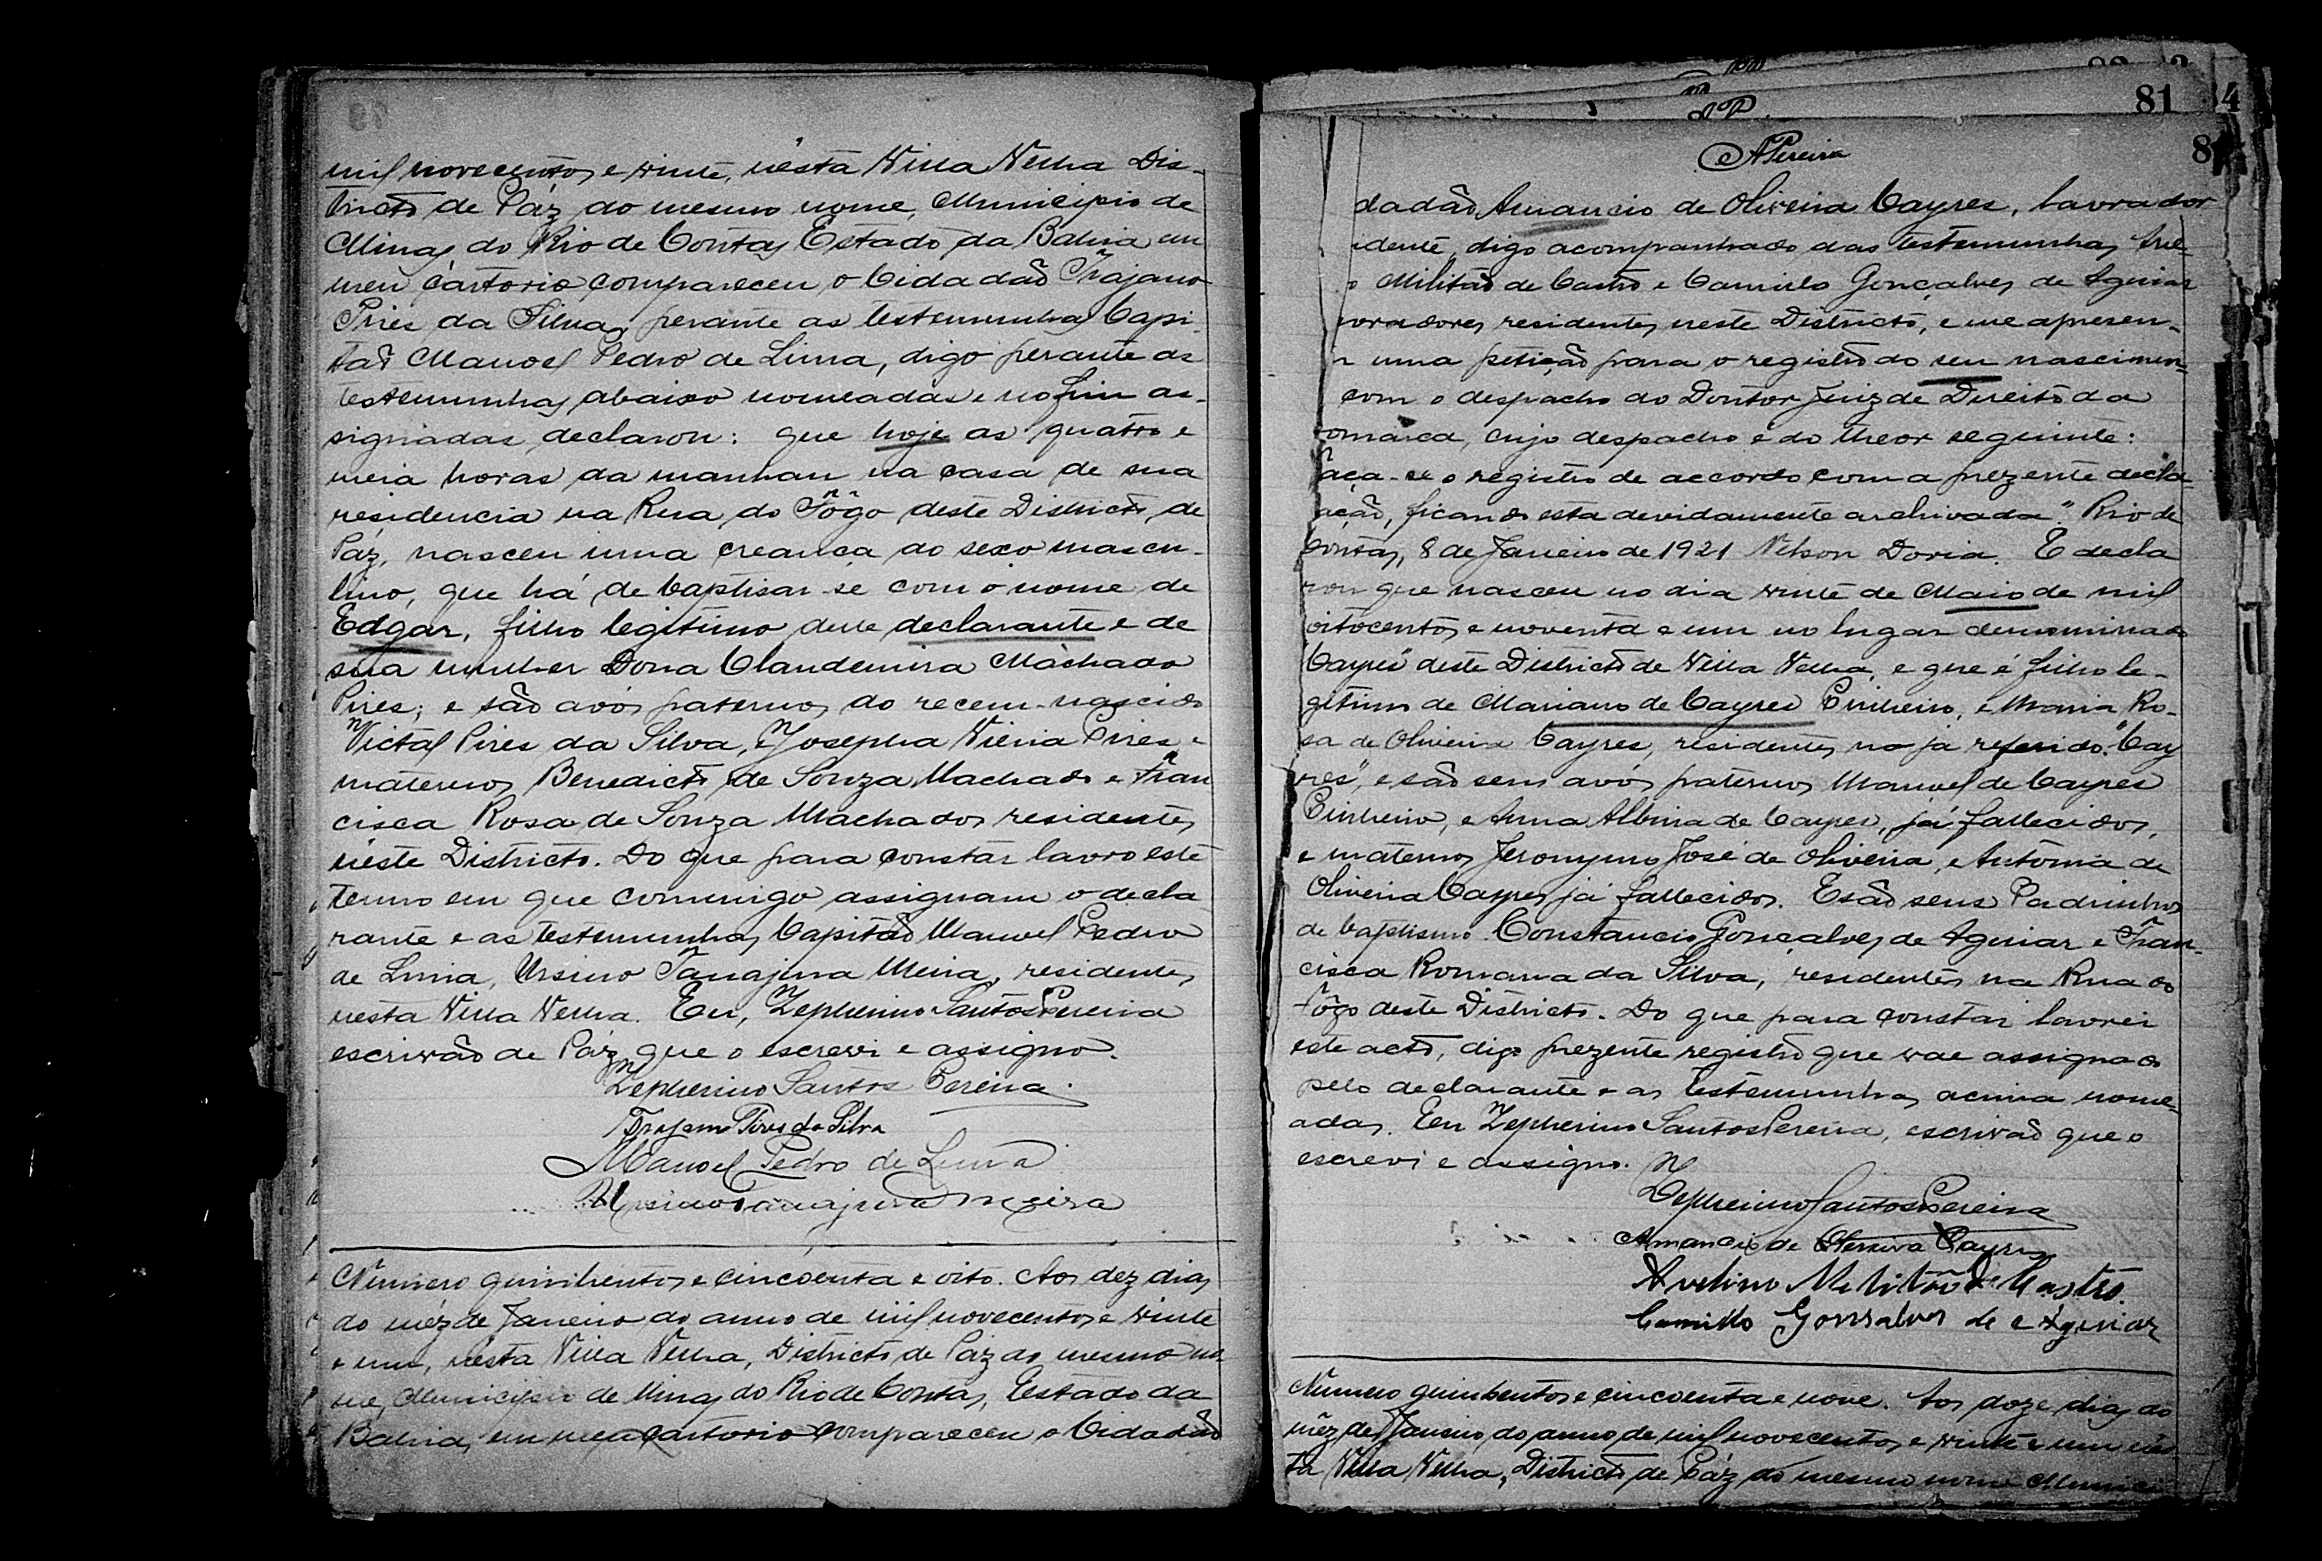 mil novecentos e vinte, nésta Villa Velha Dis-
tricto de Páz do mesmo nome, Municipio de
Minas do Rio de Contas Estado da Bahia em
meu cartorio compareceu o Cidadão Trajano
Pires da Silva, perante as testemunhas Capi-
tão Manoel Pedro de Lima, digo perante as
testemunhas abaixo nomeadas e no fim as-
signadas, declarou: que hoje as quatro e
meia horas da manhan na casa de sua
residencia na Rua do Fôgo deste Districto de
Páz, nasceu uma creança do sexo mascu-
lino, que há de baptisar-se com o nome de
Edgar, filho legitimo delle declarante e de
sua mulher Dona Claudemira Machado
Pires; e são avós paternos do recem-nascido
Victal Pires da Silva, e Josepha Vieira Pires e
maternos Benedicto de Souza Machado e Fran
cisca Rosa de Souza Machado, residentes
néste Districto. Do que para constar lavro este
termo em que commigo assignam o decla
rante e as testemunhas Capitão Manoel Pedro
de Lima, Ursino Tanajura Meira, residentes
nesta Villa Velha. Eu, Zepherino Santos Pereira
escrivão de Páz que o escrevi e assigno.
Zepherino Santos Pereira.
Trajano Pires da Silva
Manoel Pedro de Lima
Ursino Tanajura Meira
Número quinhentos e cincoenta e oito. Aos dez dias
do mêz de Janeiro do anno de mil novecentos e vinte
e um, nésta Villa Velha, Districto de Páz do mesmo no-
me, Municipio de Minas do Rio de Contas, Estado da
Bahia, em meu cartorio compareceu o Cidadão
81 84
8
APereira
dadão Amancio de Oliveira Cayres, lavrador
idente, digo acompanhado das testemunhas Ave-
o Militão de Castro e Camillo Gonçalves de Aguiar
voradores residentes neste Districto, e me apresen-
uma petição para o registro do seu nascimen-
com o despacho do Doutor Juiz de Direito da
omarca, cujo despacho é do theor seguinte:
aça-se o registro de accordo com a prezente decla
ação, ficando esta devidamente archivada". Rio de
Contas, 8 de Janeiro de 1921 Nelson Doria. E decla
rou que nasceu no dia vinte de Maio de mil
oitocentos e noventa e um no lugar denominado
"Cayres" deste Districto de Villa Velha, e que é filho le-
gitimo de Mariano de Cayres Pinheiro, e Maria Ro-
sa de Oliveira Cayres, residentes no já referido "Cay
res", e são seus avós paternos Manoel de Cayres
Pinheiro, e Anna Albina de Cayres, já fallecidos,
e maternos Jeronymo José de Oliveira, e Antonia de
Oliveira Cayres já fallecidos. E são seus Padrinhos
de baptismo Constancio Gonçalves de Aguiar e Fran-
cisca Romana da Silva, residentes na Rua do
Fôgo deste Districto. Do que para constar lavrei
este acto, digo prezente registro que vae assignado
pelo declarante e as testemunhas acima nome-
adas. Eu Zepherino Santos Pereira, escrivão que o
escrevi e assigno.
Zepherino Santos Pereira
Amancio de Oliveira Cayres
Avelino Militão de Castro.
Camillo Gonsalves de Aguiar
Número quinhentos e cincoenta e nove. Aos doze dias do
mêz de Janeiro do anno de mil novecentos e vinte e um nés
ta Villa Velha, Districto de Páz do mesmo nome Munici